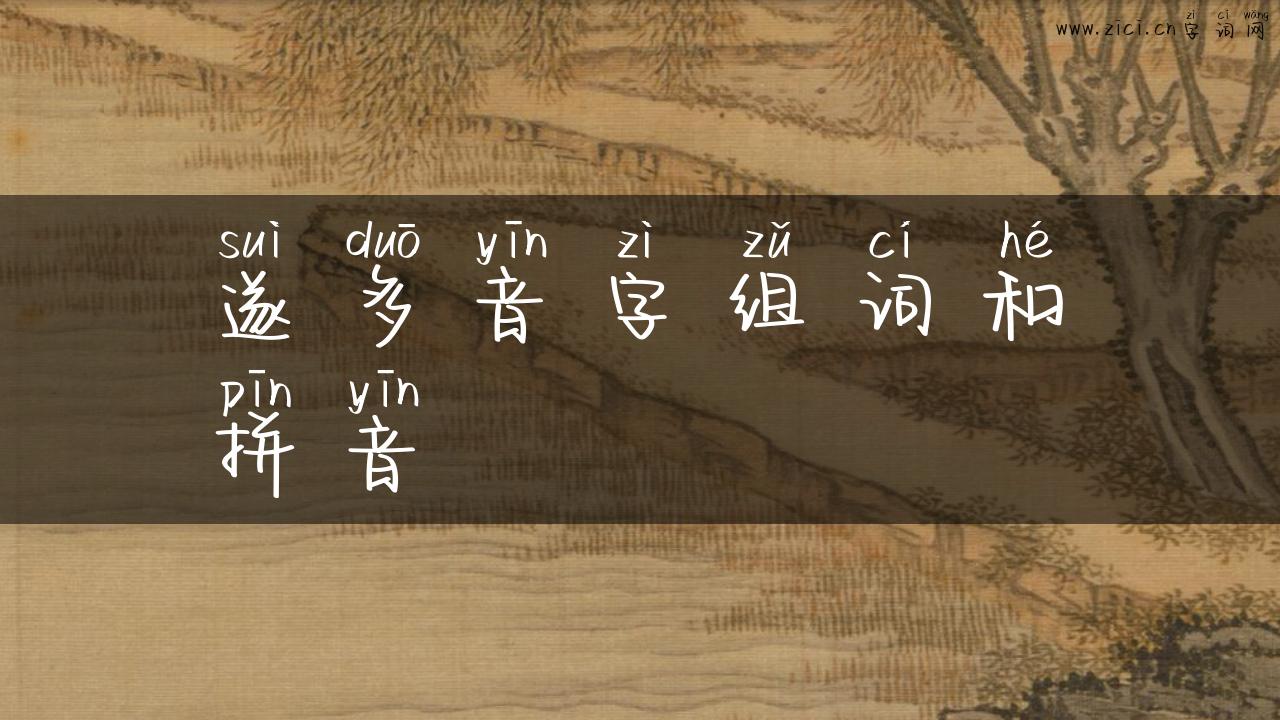 zì cí wǎng
www.zici.cn字词网
suì duō yīn zì zǔ cí hé
遂多音字组词和
pīn yīn
拼音